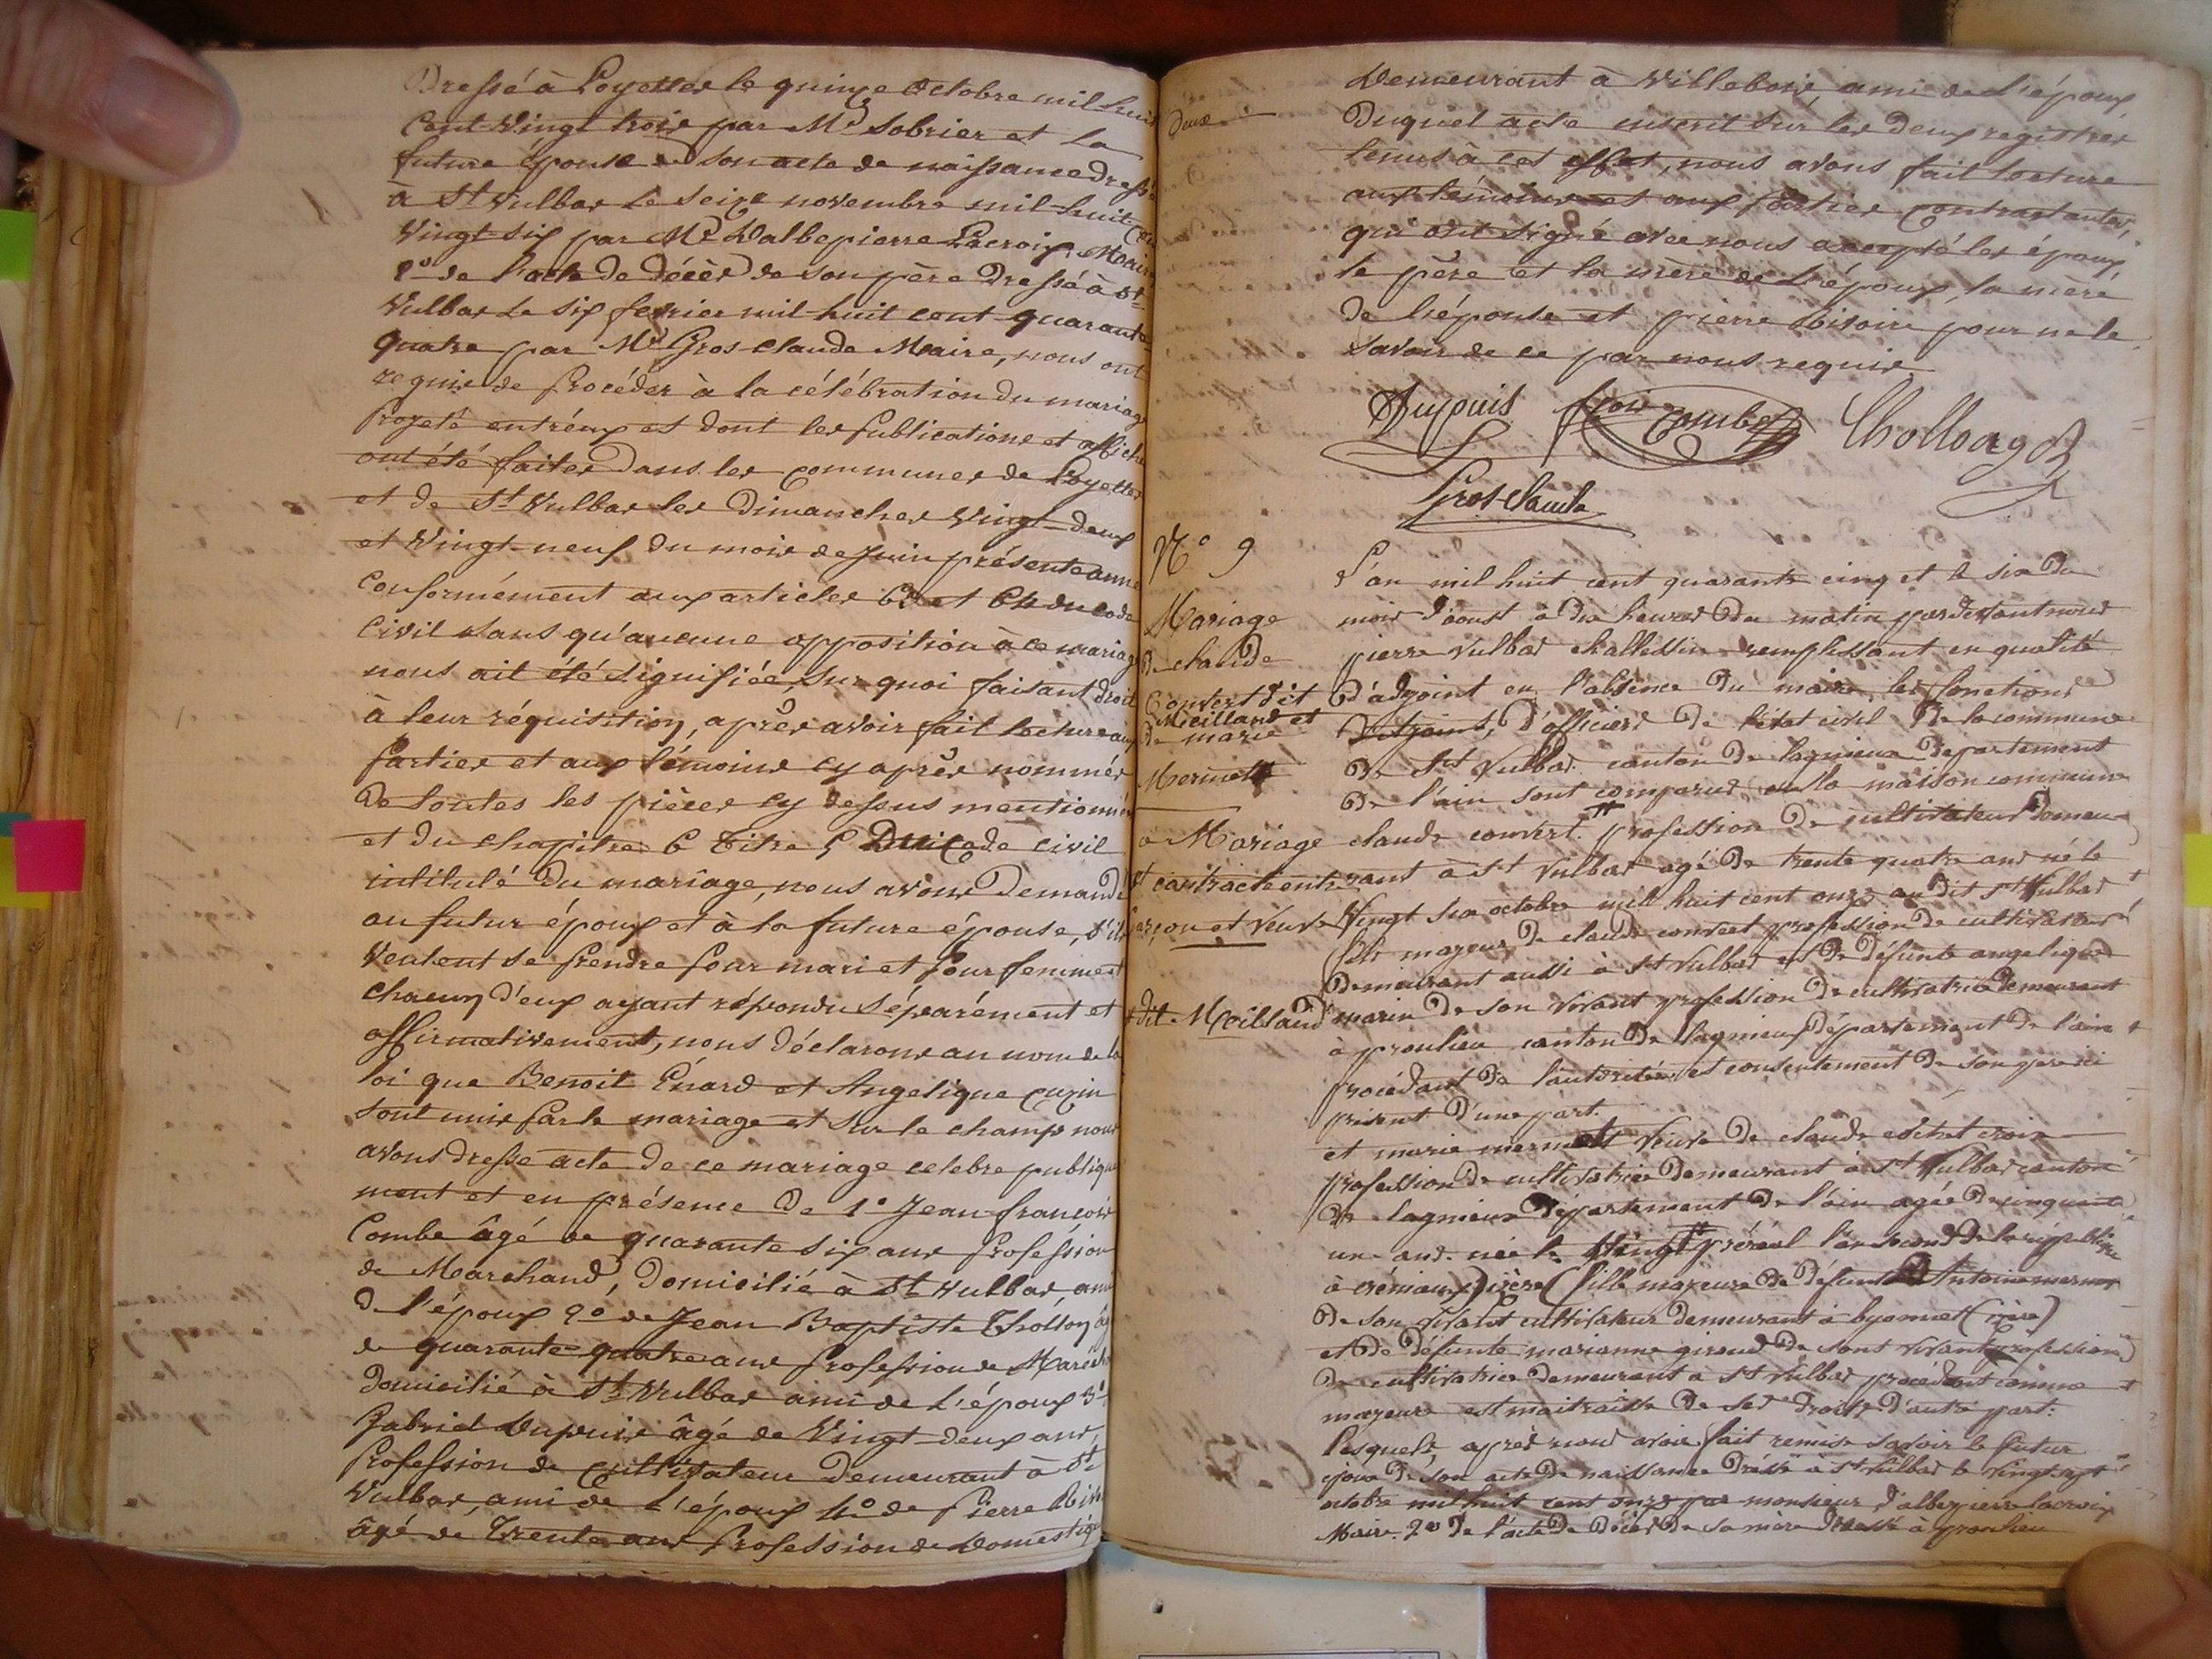 Dressé à Loyettes le quinze Octobre mil huit
Cent Vingt trois par Mr Sobrier et la
future épouse de son acte de naissance dressé
à St Vulbas le seize novembre mil huit cent
Vingt six par Mr Dalbepierre Lacroix, Maire
2o de l'acte de décès de son père Dressé à St
Vulbas Le six fevrier mil huit cent quarante
quatre par Mr Gros Claude Maire, nous ont
requis de procéder à la célébration du mariage
Projeté entréux et dont les publications et affiches
ont été faites Dans les communes de Loyettes
et de St Vulbas les Dimanches Vingt-deux
et Vingt-neuf du mois de Juin présente année
Conformément aux articles 63 et 64 du Code
Civil sans qu'aucune opposition à ce mariage
nous ait été signifiée, sur quoi faisant droit
à leur réquisition, après avoir fait lecture aux
Parties et aux témoins cy après nommés
De toutes les pièces cy dessus mentionnées
et du chapitre 6 Titre 5 Du Code civil
intitulé Du mariage, nous avons Demandé
au futur époux et à la future épouse, s'ils
veulent se prendre pour mari et pour femme et
chacun d'eux ayant répondu séparément et
affirmativement, nous déclarons au nom de la
loi que Benoit Enard et Angelique Cuzin
sont unis par le mariage et sur le champ nous
avons dressé acte de ce mariage celebre publique
ment et en présence De 1o Jean-françois
Combe âgé de quarante six ans Profession
de Marchand, Domicilié à St Vulbas, ami
De l'époux 2o de Jean Baptiste Thollon âgé
de quarante-quatre ans profession de Maréchal
domicilié à St Vulbas ami de l'époux 3o
Gabriel Dupuis âgé de Vingt-deux ans,
Profession de Cultivateur Demeurant à St
Vulbas, ami de l'époux 4o de Pierre
âgé de Trente ans Profession de Domestique
Demeurant à Villebois, ami de l'époux
Deux
Duquel acte inscrit sur les deux registres
tenus à cet effet, nous avons fait lecture
aux témoins et aux parties contractantes,
qui ont signé avec nous excepté les époux
le père et la mère de l'époux, la mère
de l'épouse et pierre pour ne le
savoir de ce par nous requis
Dupuis fçois Combe Thollon
Gros Claude
No 9
Mariage
De claude
Convert dit
Meilland et
De marie
Mermett
a Mariage
contracté entre
garçon et veuve
dit Meilland
L'an mil huit cent quarante cinq et le six du
mois d'aoust à dix heures du matin pardevant nous
pierre Vulbas challessin remplissant en qualité
D'adjoint en l'absence du maire les fonctions
D'officiers De l'état civil De la commune
De St Vulbas canton De lagnieux departement
De l'ain sont comparus en la maison commune
claude convert # profession De cultivateur Demeu
rant à St Vulbas agé De trente quatre ans né le
Vingt six octobre mil huit cent onze au dit St Vulbas
fils majeur De claude convert profession de cultivateur
Demeurant aussi à St Vulbas et De défunte angelique
marin De son vivant profession De cultivatrice Demeurant
à proulieu canton De lagnieux Département De l'ain
procédant De l'autorité et consentement De son père ici
present D'une part.
et marie mermett veuve De claude croix
profession De cultivatrice Demeurant à St Vulbas canton
De lagnieux Département De l'ain agée De cinquante
un ans née le Vingt # préréal l'an second De la république
à crémieux isère ( fille majeure De défunt Antoine mermet
De son vivant cultivateur Demeurant à hyonnet (isère)
et De défunte marianne giroud De sont vivant profession
De cultivatrice Demeurant à St Vulbas procédant comme
majeure est maitraisse De ses Droits D'autre part:
lesquels, après nous avoir fait remise savoir le futur
époux De son acte De naissance Dressé à St Vulbas le vingt sept
octobre mil huit cent onze par monsieur D'albepierre lacroix
Maire. 2o De l'acte De Décès De sa mère Dressé à proulieu